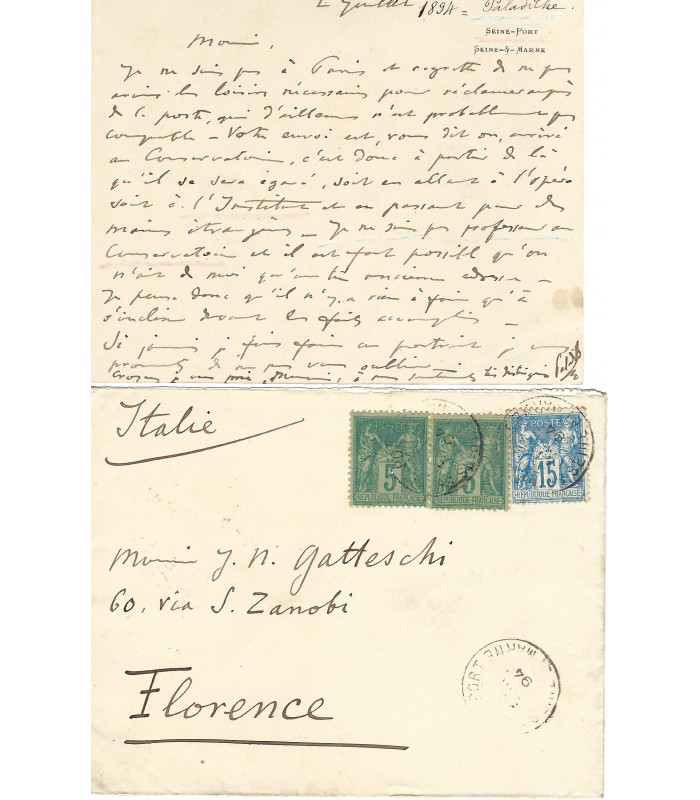 2 Juillet 1894 = Paladilhe.
SEINE-PORT
SEINE-&-MARNE
Monsieur,
Je ne suis pas à Paris et regrette de ne pas
avoir les loisirs nécessaires pour réclamer auprès
de la poste, qui d'ailleurs n'est probablement pas
coupable – Votre envoi est, vous dit on, arrivé
au Conservatoire, c'est donc à partir de là
qu'il se sera égaré, soit en allant à l'opéra
soit à l'Institut et en passant par des
mains étrangères – Je ne suis pas professeur au
Conservatoire et il est fort possible qu'on
n'ait de moi qu'une très ancienne adresse –
Je pense donc qu'il n'y a rien à faire qu'à
s'incliner devant les faits accomplis –
Si jamais je fais faire un portrait je vous
promets de ne pas vous oublier –
Croyez, je vous prie, Monsieur, à mes sentiments très distingués
Italie
POSTE
5
REPUBLIQUE FRANCAISE
POSTE
5
REPUBLIQUE FRANCAISE
POSTE
15
REPUBLIQUE FRANCAISE
Monsieur J. N. Gatteschi
60. via S. Zanobi
Florence
PORT
MARNE
94